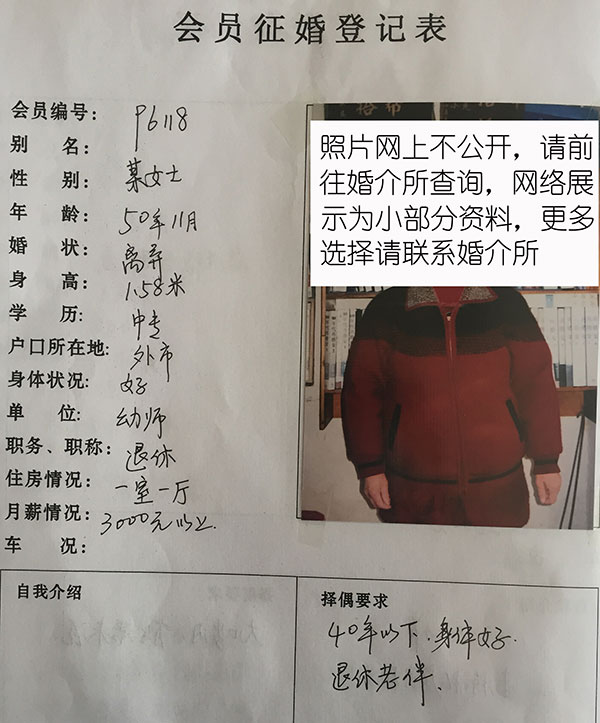 会员征婚登记表
会员编号: P6118
别 名:
性 别: 某女士
年 龄: 50年11月
婚 状: 离异
身 高: 1.58米
学 历: 中专
户口所在地: 外市
身体状况: 好
单 位: 幼师
职务、职称: 退休
住房情况: 一室一厅
月薪情况: 3000元以上.
车 况:
照片网上不公开，请前
往婚介所查询，网络展
示为小部分资料，更多
选择请联系婚介所
自我介绍
择偶要求
40年以下.身体好.
退休老伴、